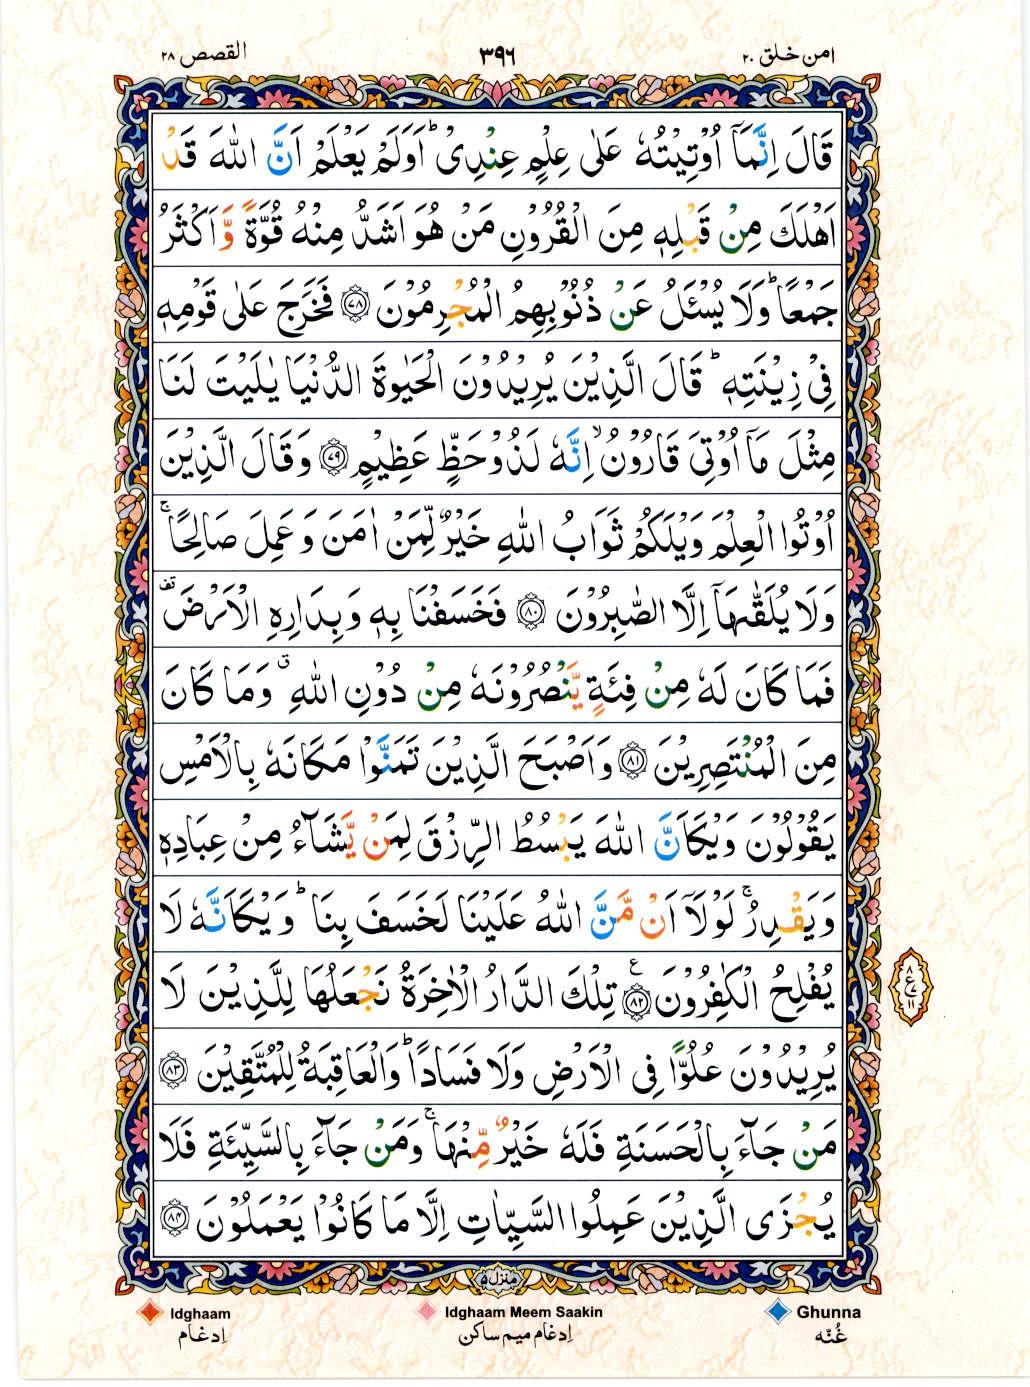 امن خلق ۲۰ ۳۹۶ القصص ۲۸
قَالَ اِنَّمَاۤ اُوۡتِيۡتُهٗ عَلٰى عِلۡمٍ عِنۡدِىۡؕ اَوَلَمۡ يَعۡلَمۡ اَنَّ اللّٰهَ قَدۡ
اَهۡلَكَ مِنۡ قَبۡلِهٖ مِنَ الۡقُرُوۡنِ مَنۡ هُوَ اَشَدُّ مِنۡهُ قُوَّةً وَّاَكۡثَرُ
جَمۡعًاؕ وَلَا يُسۡـَٔلُ عَنۡ ذُنُوۡبِهِمُ الۡمُجۡرِمُوۡنَ ﴿۷۸﴾ فَخَرَجَ عَلٰى قَوۡمِهٖ
فِىۡ زِيۡنَتِهٖؕ قَالَ الَّذِيۡنَ يُرِيۡدُوۡنَ الۡحَيٰوةَ الدُّنۡيَا يٰلَيۡتَ لَنَا
مِثۡلَ مَاۤ اُوۡتِىَ قَارُوۡنُۙ اِنَّهٗ لَذُوۡ حَظٍّ عَظِيۡمٍ ﴿۷۹﴾ وَقَالَ الَّذِيۡنَ
اُوۡتُوا الۡعِلۡمَ وَيۡلَكُمۡ ثَوَابُ اللّٰهِ خَيۡرٌ لِّمَنۡ اٰمَنَ وَعَمِلَ صَالِحًاۚ
وَلَا يُلَقّٰٮهَاۤ اِلَّا الصّٰبِرُوۡنَ ﴿۸۰﴾ فَخَسَفۡنَا بِهٖ وَبِدَارِهِ الۡاَرۡضَ تف
فَمَا كَانَ لَهٗ مِنۡ فِئَةٍ يَّنۡصُرُوۡنَهٗ مِنۡ دُوۡنِ اللّٰهِ ق وَمَا كَانَ
مِنَ الۡمُنۡتَصِرِيۡنَ ﴿۸۱﴾ وَاَصۡبَحَ الَّذِيۡنَ تَمَنَّوۡا مَكَانَهٗ بِالۡاَمۡسِ
يَقُوۡلُوۡنَ وَيۡكَاَنَّ اللّٰهَ يَبۡسُطُ الرِّزۡقَ لِمَنۡ يَّشَآءُ مِنۡ عِبَادِهٖ
وَيَقۡدِرُۚ لَوۡلَاۤ اَنۡ مَّنَّ اللّٰهُ عَلَيۡنَا لَخَسَفَ بِنَاؕ وَيۡكَاَنَّهٗ لَا
يُفۡلِحُ الۡكٰفِرُوۡنَ ﴿۸۲﴾ ع تِلۡكَ الدَّارُ الۡاٰخِرَةُ نَجۡعَلُهَا لِلَّذِيۡنَ لَا
۸ ع ۷ ۱۱
يُرِيۡدُوۡنَ عُلُوًّا فِى الۡاَرۡضِ وَلَا فَسَادًاؕ وَالۡعَاقِبَةُ لِلۡمُتَّقِيۡنَ ﴿۸۳﴾
مَنۡ جَآءَ بِالۡحَسَنَةِ فَلَهٗ خَيۡرٌ مِّنۡهَاۚ وَمَنۡ جَآءَ بِالسَّيِّئَةِ فَلَا
يُجۡزَى الَّذِيۡنَ عَمِلُوا السَّيِّاٰتِ اِلَّا مَا كَانُوۡا يَعۡمَلُوۡنَ ﴿۸۴﴾
منزل ۵
Idghaam Idghaam Meem Saakin Ghunna
اِدغام اِدغام میم ساکن غُنّه